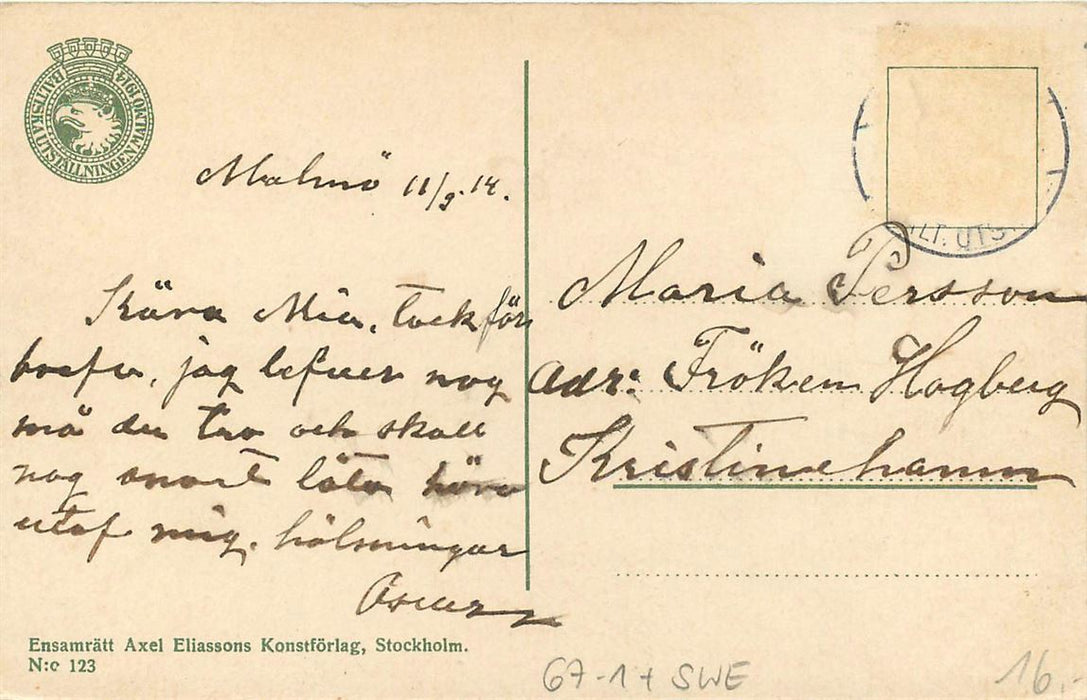 BALTISKA UTSTÄLLNINGEN MALMÖ 1914
Malmö 11/9.14.
Kära Mia, tack för
brefvet, jag lefver nog
må du tro och skall
nog snart låta höra
utaf mig. hälsningar
Oscar
LT. UTS
Maria Persson
adr: Fröken Hogberg
Kristinehamn
Ensamrätt Axel Eliassons Konstförlag, Stockholm.
N:o 123
67-1+ SWE
16.-